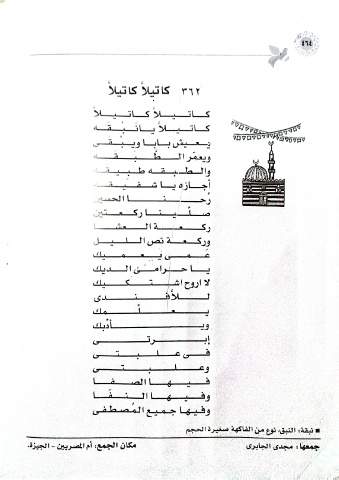 ٤٦٤
٣٦٢ كاتيلاً كاتيلاً
كاتيلاً كاتيلاً
كاتيلاً يا نبقه
يعيش بابا ويبقى
ويعمر الطبقه
والطبقه طبيقه
إجازه يا شفيقه
رحنا الحسين
صلينا ركعتين
ركعة العشا
وركعة نص الليل
عمى يعميك
يا حرامى الديك
لا اروح اشتكيك
للأفندى
يعلمك
ويأدبك
إبرتى
فى علبتى
وعلبتى
فيها الصفا
وفيها النفا
وفيها جميع المُصطفى
■ نبقة: النبق، نوع من الفاكهة صغيرة الحجم
جمعها: مجدى الجابرى
مكان الجمع: أم المصريين - الجيزة.